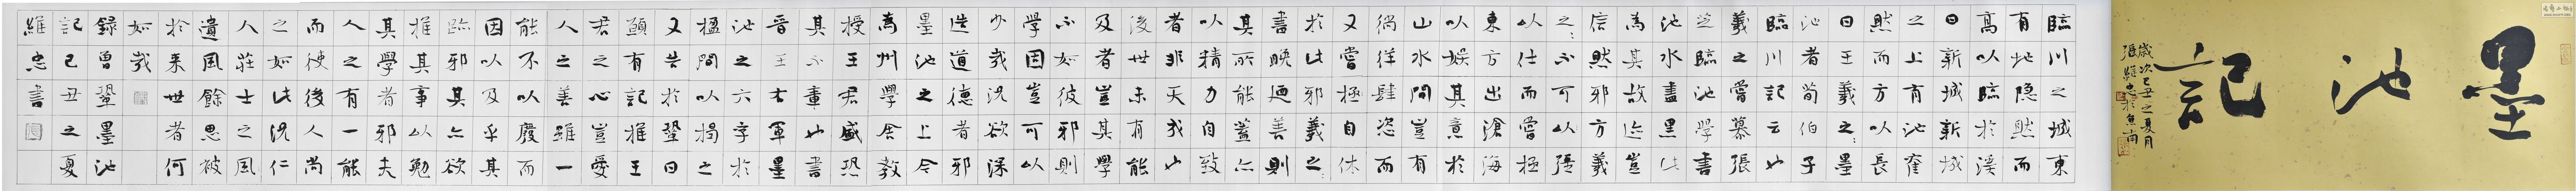 墨池記
歲次己丑之夏月
張維忠於
臨川之城東
有地隐然而
高以臨於溪
曰新城新城
之上有池窪
然而方以長
曰王羲之墨
池者荀伯子
臨川記云也
羲之嘗慕張
芝臨池學書
池水盡黑此
為其故迹豈
信然邪方羲
之〻不可以强
以仕而嘗極
東方出滄海
以娛其意於
山水間豈有
徜徉肆恣而
又嘗極自休
於此邪羲之〻
書晚廼善則
其所能蓋亦
以精力自致
者非天成也
後世未有能
及者豈其學
不如彼邪則
學固豈可以
少哉況欲深
造道德者邪
墨池之上今
為州學舍教
授王君盛恐
其不章也書
晉王右軍墨
池之六字於
楹間以揭之
又告於鞏曰
願有記推王
君之心豈愛
人之善雖一
能不以廢而
因以及乎其
跡邪其亦欲
推其事以勉
其學者邪夫
人之有一能
而使後人尚
之如此況仁
人莊士之風
遺風餘思被
於來世者何
如哉
錄曾鞏墨池
記己丑之夏
維忠書